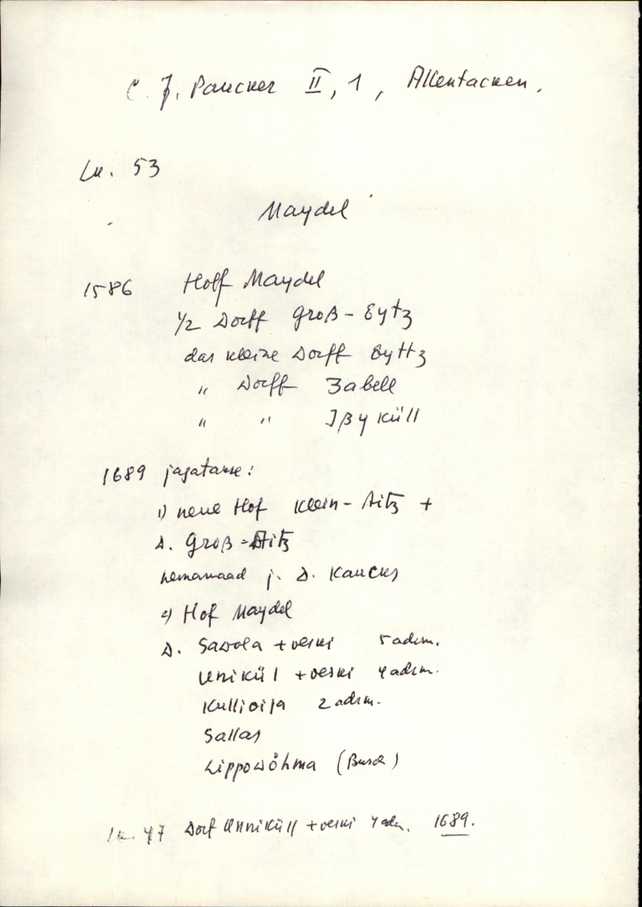 C. J. Paucker II, 1, Allentacken.
Lk. 53
Maydel
1586 Hoff Maydel
1/2 Dorff Groß-Eytz
das kleine Dorff Eyttz
" Dorff Zabell
" " Ißyküll
1689 jagatakse:
1) neue Hof Klein-Aitz +
D. Groß-Aitz
heinamaad j. D. Kaucks
2) Hof Maydel
D. Sawola + veski 5 adrm.
Uniküll + veski 4 adrm.
Kullioija 2 adrm.
Sallas
Lippowöhma (Busch)
Lk. 47 Dorf Unniküll + veski 4 adr. 1689.